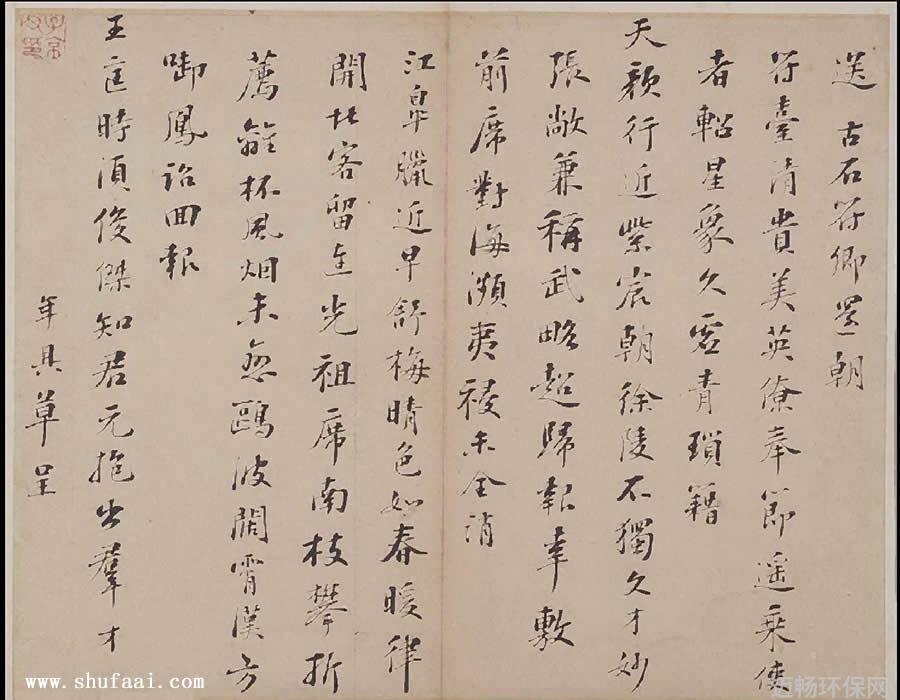 送 古石符卿還朝
符臺清貴美英僚奉節遥乘使
者軺星象久虛青瑣籍
天顏行近紫宸朝徐陵不獨文才妙
張敞兼稱武略超歸報幸敷
前席對海瀕夷祲未全消
江皐臘近早舒梅晴色如春暖律
開北客留連光祖席南枝攀折
薦離杯風烟未忽鷗波闊霄漢方
啣鳳詔回報
王匡時須俊傑知君元抱出羣才
年具草呈
www.shufaai.com
迈畅环保网